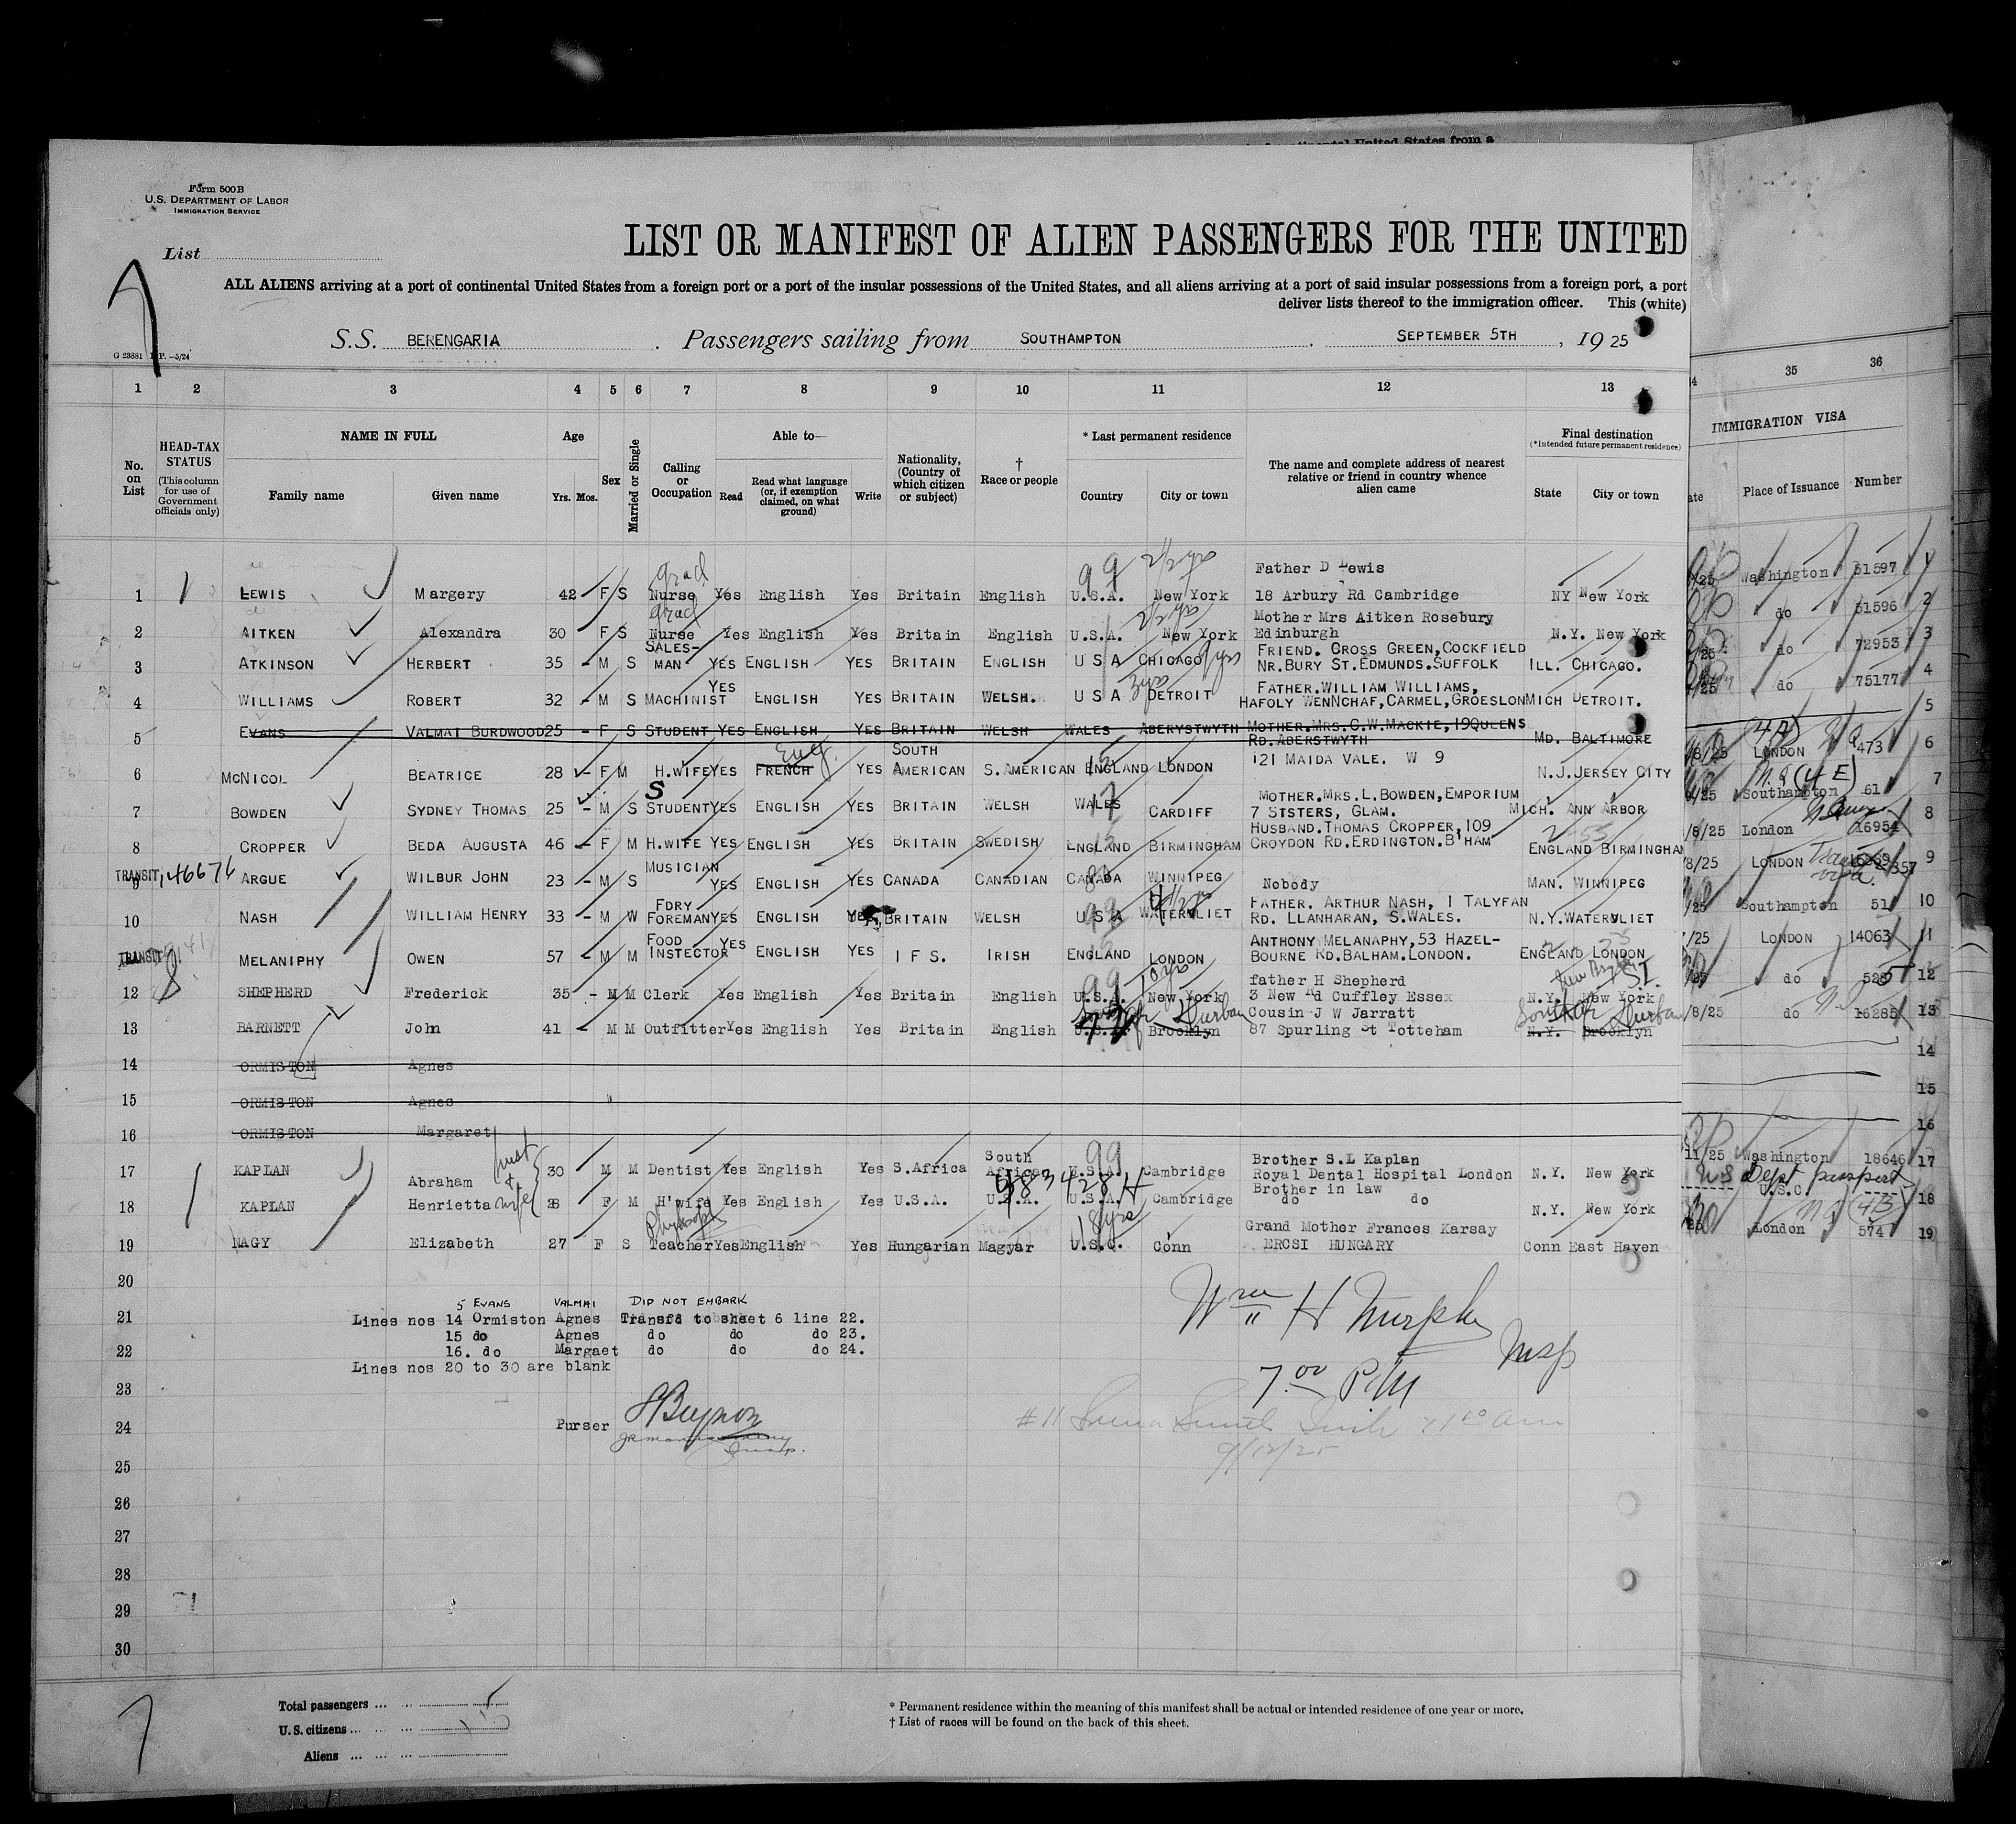 Form 500 B
U.S. DEPARTMENT OF LABOR
IMMIGRATION SERVICE
List
7
LIST OR MANIFEST OF ALIEN PASSENGERS FOR THE UNITED
ALL ALIENS arriving at a port of continental United States from a foreign port or a port of the insular possessions of the United States, and all aliens arriving at a port of said insular possessions from a foreign port, a port
deliver lists thereof to the immigration officer. This (white)
S.S. BERENGARIA . Passengers sailing from SOUTHAMPTON . SEPTEMBER 5TH , 19 25
G 23881 —5/24
1 2 3 4 5 6 7 8 9 10 11 12 13 35 36
No. on List
HEAD-TAX STATUS (This column for use of Government officials only)
NAME IN FULL
Family name Given name
Age
Yrs. Mos.
Sex
Married or Single
Calling or Occupation
Able to—
Read Read what language (or, if exemption claimed, on what ground) Write
Nationality, (Country of which citizen or subject)
† Race or people
* Last permanent residence
Country City or town
The name and complete address of nearest relative or friend in country whence alien came
Final destination
(*Intended future permanent residence)
State City or town
IMMIGRATION VISA
Place of Issuance Number
grad 99 2½ yrs Father D Lewis
1 LEWIS Margery 42 F S Nurse Yes English Yes Britain English U.S.A. New York 18 Arbury Rd Cambridge NY New York /25 Washington 51597 1
grad 2½ yrs Mother Mrs Aitken Rosebury
2 AITKEN Alexandra 30 F S Nurse Yes English Yes Britain English U.S.A. New York Edinburgh N.Y. New York do 51596 2
SALES- FRIEND. CROSS GREEN, COCKFIELD
3 ATKINSON HERBERT 35 - M S MAN YES ENGLISH YES BRITAIN ENGLISH U S A CHICAGO NR.BURY ST.EDMUNDS.SUFFOLK ILL. CHICAGO. /25 do 72953 3
YES FATHER.WILLIAM WILLIAMS,
4 WILLIAMS ROBERT 32 - M S MACHINIST ENGLISH YES BRITAIN WELSH. U S A DETROIT HAFOLY WENNCHAF, CARMEL, GROESLON MICH DETROIT. /25 do 75177 4
5 EVANS VALMAI BURDWOOD 25 - F S STUDENT YES ENGLISH YES BRITAIN WELSH WALES ABERYSTWYTH MOTHER.MRS.G.W.MACKIE, 19 QUEENS RD.ABERSTWYTH MD. BALTIMORE 5
Eng. SOUTH
6 MCNICOL BEATRICE 28 - F M H.WIFE YES FRENCH YES AMERICAN S.AMERICAN ENGLAND LONDON 121 MAIDA VALE. W 9 N.J.JERSEY CITY /8/25 LONDON 473 6
S MOTHER.MRS.L.BOWDEN, EMPORIUM
7 BOWDEN SYDNEY THOMAS 25 - M S STUDENT YES ENGLISH YES BRITAIN WELSH WALES CARDIFF 7 STSTERS, GLAM. MICH. ANN ARBOR /25 Southampton 61 7
HUSBAND.THOMAS CROPPER, 109
8 CROPPER BEDA AUGUSTA 46 - F M H.WIFE YES ENGLISH YES BRITAIN SWEDISH ENGLAND BIRMINGHAM CROYDON RD.ERDINGTON.B'HAM ENGLAND BIRMINGHAM /8/25 London 16954 8
MUSICIAN
TRANSIT 9 ARGUE WILBUR JOHN 23 - M S YES ENGLISH YES CANADA CANADIAN CANADA WINNIPEG Nobody MAN. WINNIPEG /8/25 LONDON 9
FDRY FATHER. ARTHUR NASH, I TALYFAN
10 NASH WILLIAM HENRY 33 - M W FOREMAN YES ENGLISH YES BRITAIN WELSH U S A WATERVLIET RD. LLANHARAN, S.WALES. N.Y.WATERVLIET /25 Southampton 51 10
FOOD ANTHONY MELANAPHY, 53 HAZEL-
TRANSIT MELANIPHY OWEN 57 - M M INSTECTOR YES ENGLISH YES I F S. IRISH ENGLAND LONDON BOURNE RD.BALHAM.LONDON. ENGLAND LONDON /25 LONDON 14063 11
99 10 yrs father H Shepherd
12 SHEPHERD Frederick 35 - M M Clerk Yes English Yes Britain English U.S.A. New York 3 New Rd Cuffley Essex N.Y. New York /25 do 5285 12
Durban Cousin J W Jarratt
13 BARNETT John 41 - M M Outfitter Yes English Yes Britain English U.S.A. Brooklyn 87 Spurling St Totteham N.Y. Brooklyn /8/25 do 16285 13
14 ORMISTON Agnes 14
15 ORMISTON Agnes 15
16 ORMISTON Margaret 16
South 99 Brother S.L Kaplan
17 KAPLAN Abraham 30 M M Dentist Yes English Yes S.Africa African U.S.A. Cambridge Royal Dental Hospital London N.Y. New York 11/25 Washington 18646 17
983428 H Brother in law
18 KAPLAN Henrietta wife 28 F M H'wife Yes English Yes U.S.A. U.S.A. U.S.A. Cambridge do do N.Y. New York Dept passport U.S.C. 18
18 yrs Grand Mother Frances Karsay
19 NAGY Elizabeth 27 F S Teacher Yes English Yes Hungarian Magyar U.S.C. Conn ERCSI HUNGARY Conn East Haven London 574 19
20
5 EVANS VALMAI DID NOT EMBARK
21 Lines nos 14 Ormiston Agnes Transfd to sheet 6 line 22.
15 do Agnes do do do 23.
22 16. do Margaet do do do 24.
Lines nos 20 to 30 are blank
Wm H Murphy
Insp
7.00 P.M
23
24 Purser
9/12/25
25
26
27
28
29
30
7
Total passengers ...
U. S. citizens ...
Aliens ...
* Permanent residence within the meaning of this manifest shall be actual or intended residence of one year or more.
† List of races will be found on the back of this sheet.